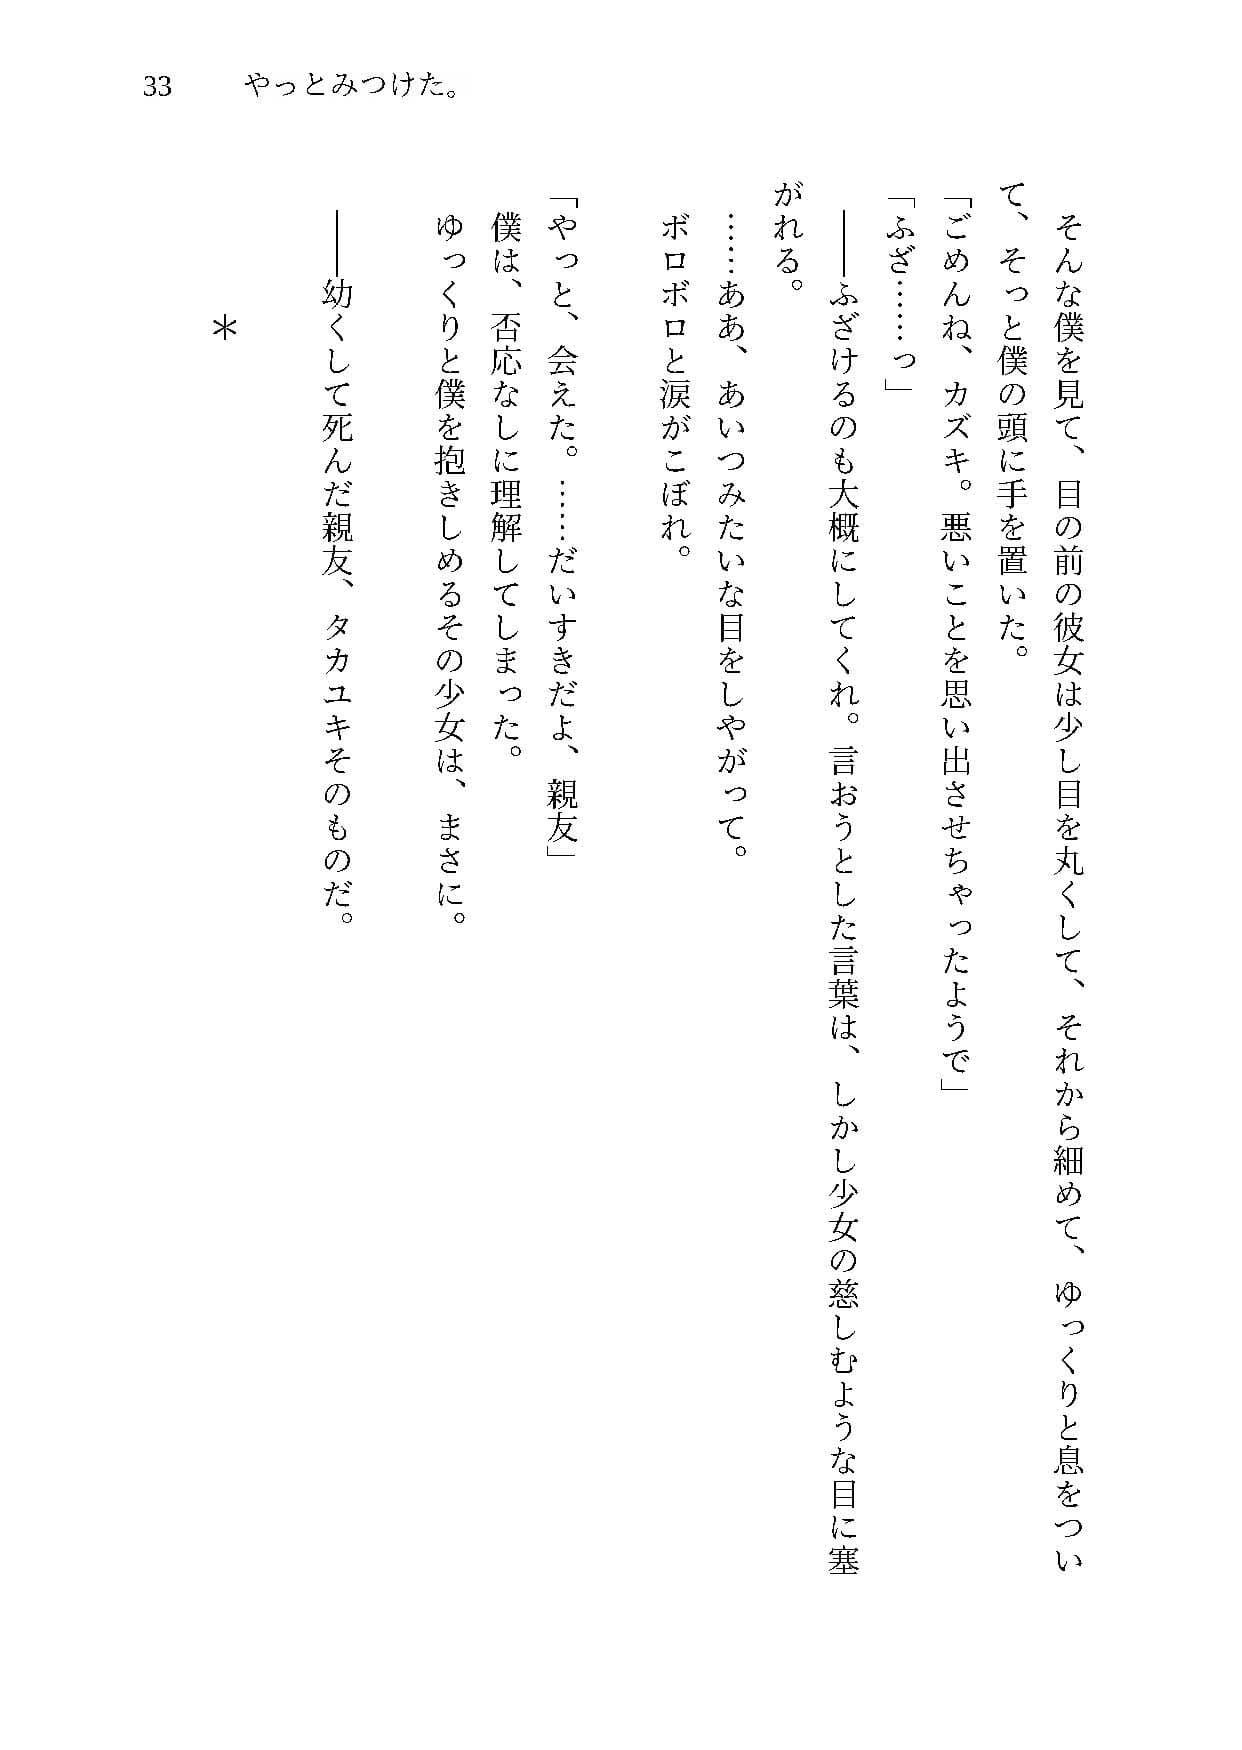 33　やっとみつけた。
　そんな僕を見て、目の前の彼女は少し目を丸くして、それから細めて、ゆっくりと息をつい
て、そっと僕の頭に手を置いた。
「ごめんね、カズキ。悪いことを思い出させちゃったようで」
「ふざ……っ」
　――ふざけるのも大概にしてくれ。言おうとした言葉は、しかし少女の慈しむような目に塞
がれる。
　……ああ、あいつみたいな目をしやがって。
　ボロボロと涙がこぼれ。
「やっと、会えた。……だいすきだよ、親友」
　僕は、否応なしに理解してしまった。
　ゆっくりと僕を抱きしめるその少女は、まさに。
　――幼くして死んだ親友、タカユキそのものだ。
＊